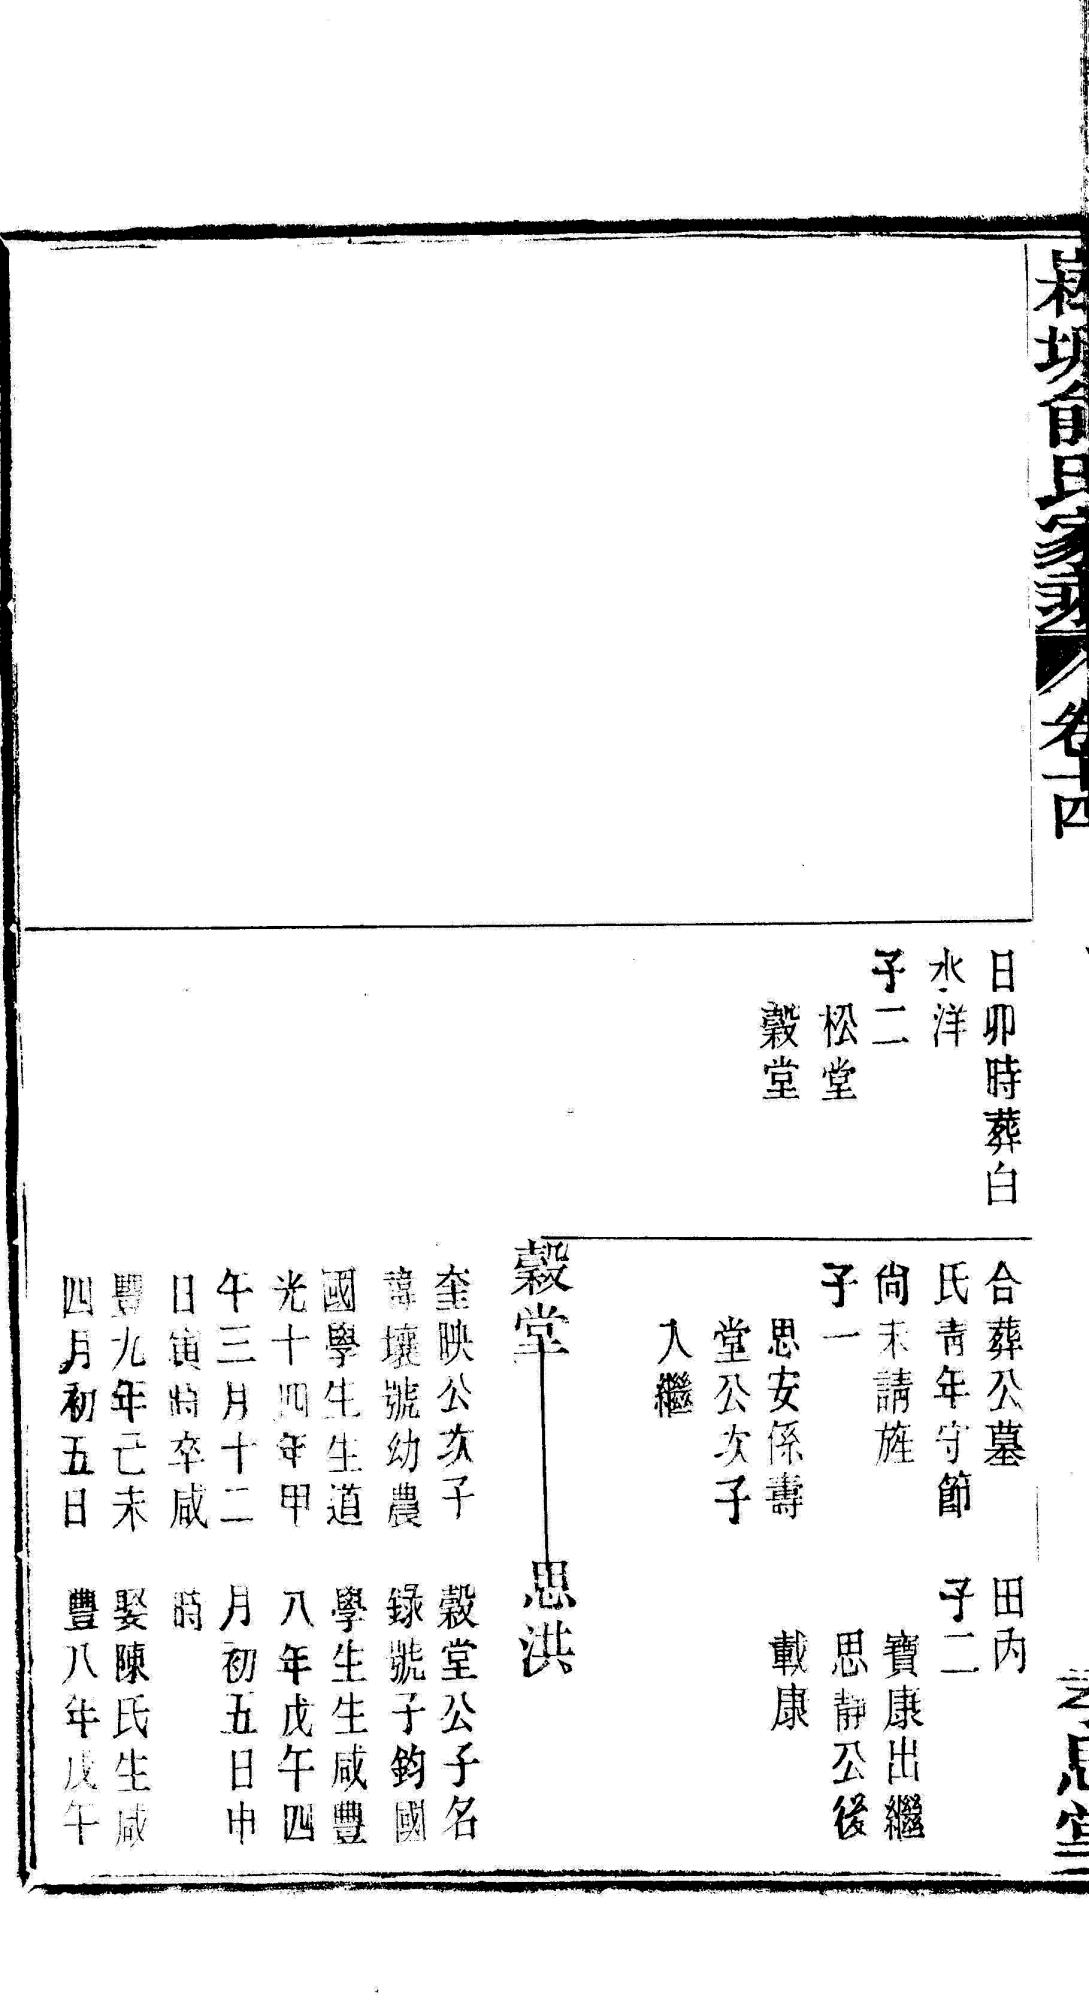 俞氏家乘 卷十四
日卯時葬白
水洋
子二
松堂
穀堂
合葬公墓
氏青年守節
尙未請旌
子一
思安係壽
堂公次子
入繼
田內
子二
寶康出繼
思靜公後
載康
穀堂
奎映公次子
諱壤號幼農
國學生生道
光十四年甲
午三月十二
日寅時卒咸
豐九年己未
四月初五日
思洪
穀堂公子名
錄號子鈞國
學生生咸豐
八年戊午四
月初五日申
時
娶陳氏生咸
豐八年戊午
孝思堂